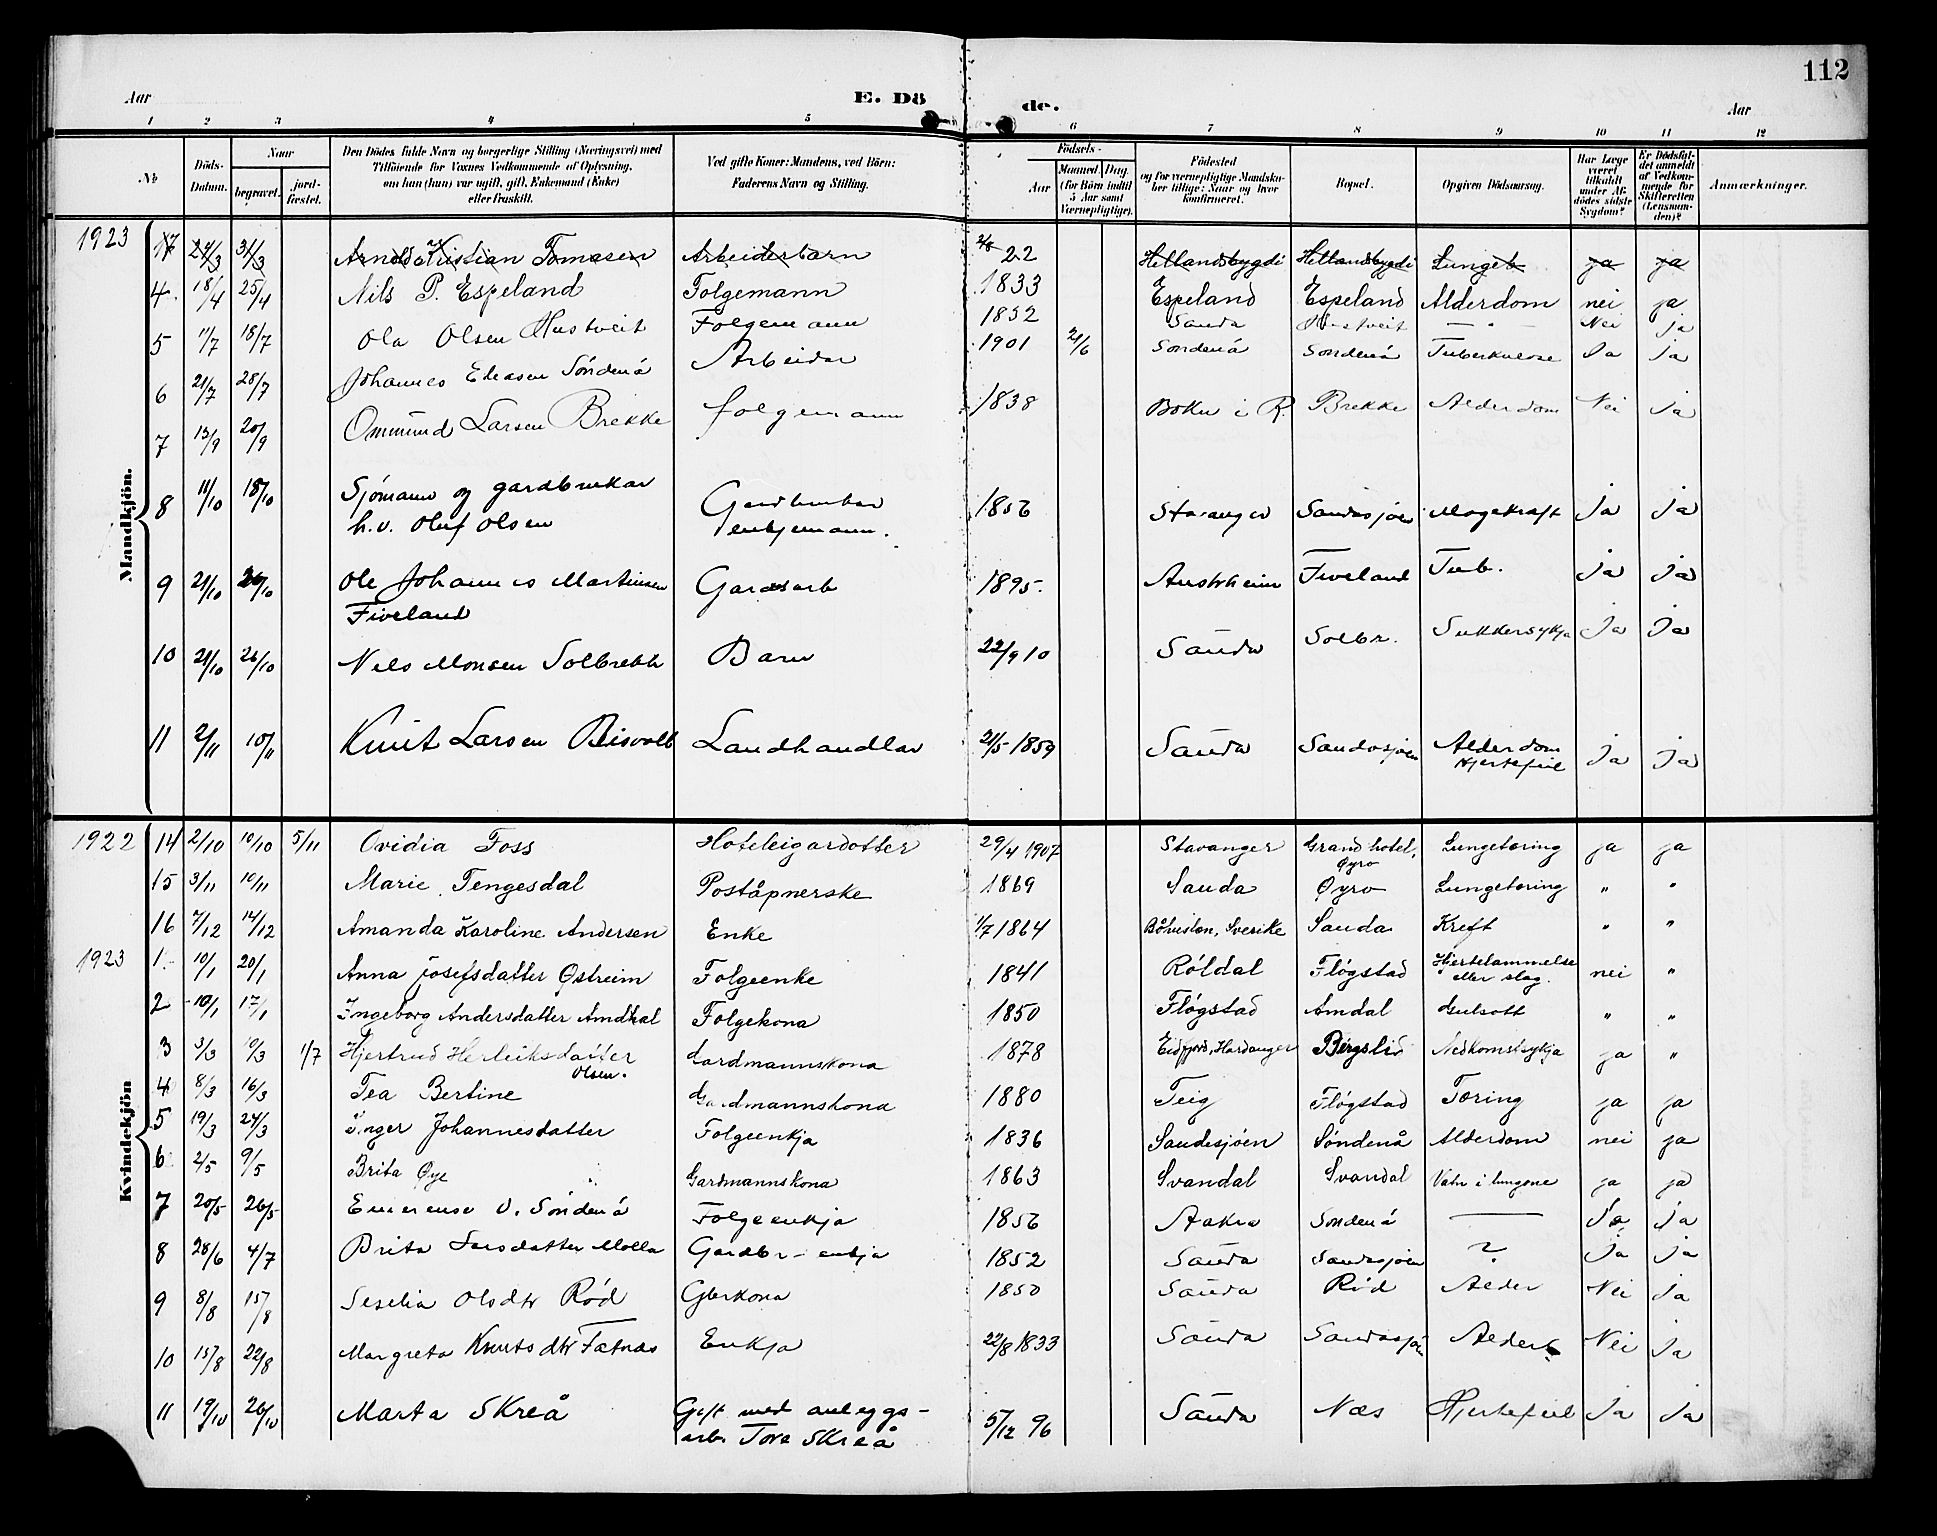 112
Aar E. Dö de. Aar
1 2 3 4 5 6 7 8 9 10 11 12
№ Döds-Datum. Naar begravet. jord-fæstet. Den Dödes fulde Navn og borgerlige Stilling (Næringsvei) med Tilföiende for Voxnes Vedkommende af Oplysning, om han (hun) var ugift, gift, Enkemand (Enke) eller fraskilt. Ved gifte Koner: Mandens, ved Börn: Faderens Navn og Stilling. Födsels- Aar Maaned. Dag. (for Börn indtil 5 Aar samt Værnepligtige). Födested og for værnepligtige Mandskaber tillige: Naar og hvor konfirmeret. Bopæl. Opgiven Dödsaarsag. Har Læge været tilkaldt under Afdödes sidste Sygdom? Er Dödsfaldet anmeldt af Vedkommende for Skifteretten (Lensmanden)? Anmærkninger.
Mandkjön.
1923 17 24/3 31/3 Arnold Kristian Tomasen Arbeiderbarn 2/8 22 Hellandsbygdi Hellandsbygdi Lungeb. ja ja
4. 18/4 25/4 Nils P. Espeland Folgemann 1833 Espeland Espeland Alderdom nei ja
5 11/7 18/7 Ola Olsen Hustveit Folgemann 1832 Sauda Hustveit — " — Nei Ja
6 21/7 28/7 Johannes Eliasen Söndenå Arbeidar 1901 21/6 Sondenå Sondenå Tuberkulose Ja Ja
7 13/9 20/9 Ommund Larsen Brekke folgemann 1838 Bokn i R. Brekke Alderdom Nei Ja
8 11/10 18/10 Sjömann og gardbrukar
h.v. Oluf Olsen Gardbrukar
enkjemann. 1856 Stavanger Saudasjöen Magekraft Ja Ja
9 21/10 26/10 Ole Johannes Martinsen
Fiveland Gardsarb 1895. Austrheim Fiveland Tub. Ja Ja
10 21/10 26/10 Nils Monsen Solbrekk Barn 22/9 10 Sauda Solbr. Sukkersykja Ja Ja
11 2/11 10/11 Knut Larsen Landhandlar 2/5-1859 Sauda Saudasjöen Alderdom
Hjertefeil Ja Ja
Kvindekjön
1922 14 2/10 10/10 5/11 Ovidia Foss Hoteleigardotter 29/4 1907 Stavanger Grand hotel,
Øyro Lungetæring ja ja
15 3/11 10/11 Marie Tengesdal Poståpnerske 1869 Sauda Øyro Lungetæring " "
16 7/12 14/12 Amanda Karoline Andersen Enke 11/7 1864 Sverike Sauda Kreft " "
1923 1. 10/1 20/1 Anna Josefsdatter Østreim Folgeenke 1841 Röldal Flögstad Hjertelammelse
eller slag. nei "
2 10/1 17/1 Ingeborg Andersdatter Amdal Folgekona 1850 Flögstad Amdal Gulsott " "
3 3/3 10/3 1/7 Hjertrud Herleiksdatter
Olsen. Gardmannskona 1878 Eidfjord, Hardanger Bergslid Nedkomstsykja ja "
4 8/3 16/3 Tea Bertine Gardmannskona 1880 Teig Flögstad Tæring ja ja
5 19/3 24/3 Inger Johannesdatter Folgeenkja 1836 Saudesjöen Söndenå Alderdom nei ja
6 2/5 9/5 Brita Øye Gardmannskona 1863 Svandal Svandal Vatn i lungone ja ja
7 20/5 26/5 Emerense O. Söndenå Folgeenkja 1856 Aakra Sondenå — Ja Ja
8 28/6 4/7 Brita Larsdatter Molla Gardbr - enkja 1852 Sauda Saudasjöen ? Ja Ja
9 8/8 15/8 Seselia Olsdtr Röd Gbrkona 1850 Sauda Röd Alder Nei Ja
10 15/8 22/8 Margreta Knutsdtr Fatnes Enkja 22/8 1833 Sauda Saudasjöen Alder Nei Ja
11 19/10 26/10 Marta Skreå Gift med anleggs-
arb. Tore Skreå 5/12 96 Sauda Næs Hjertefeil Ja Ja